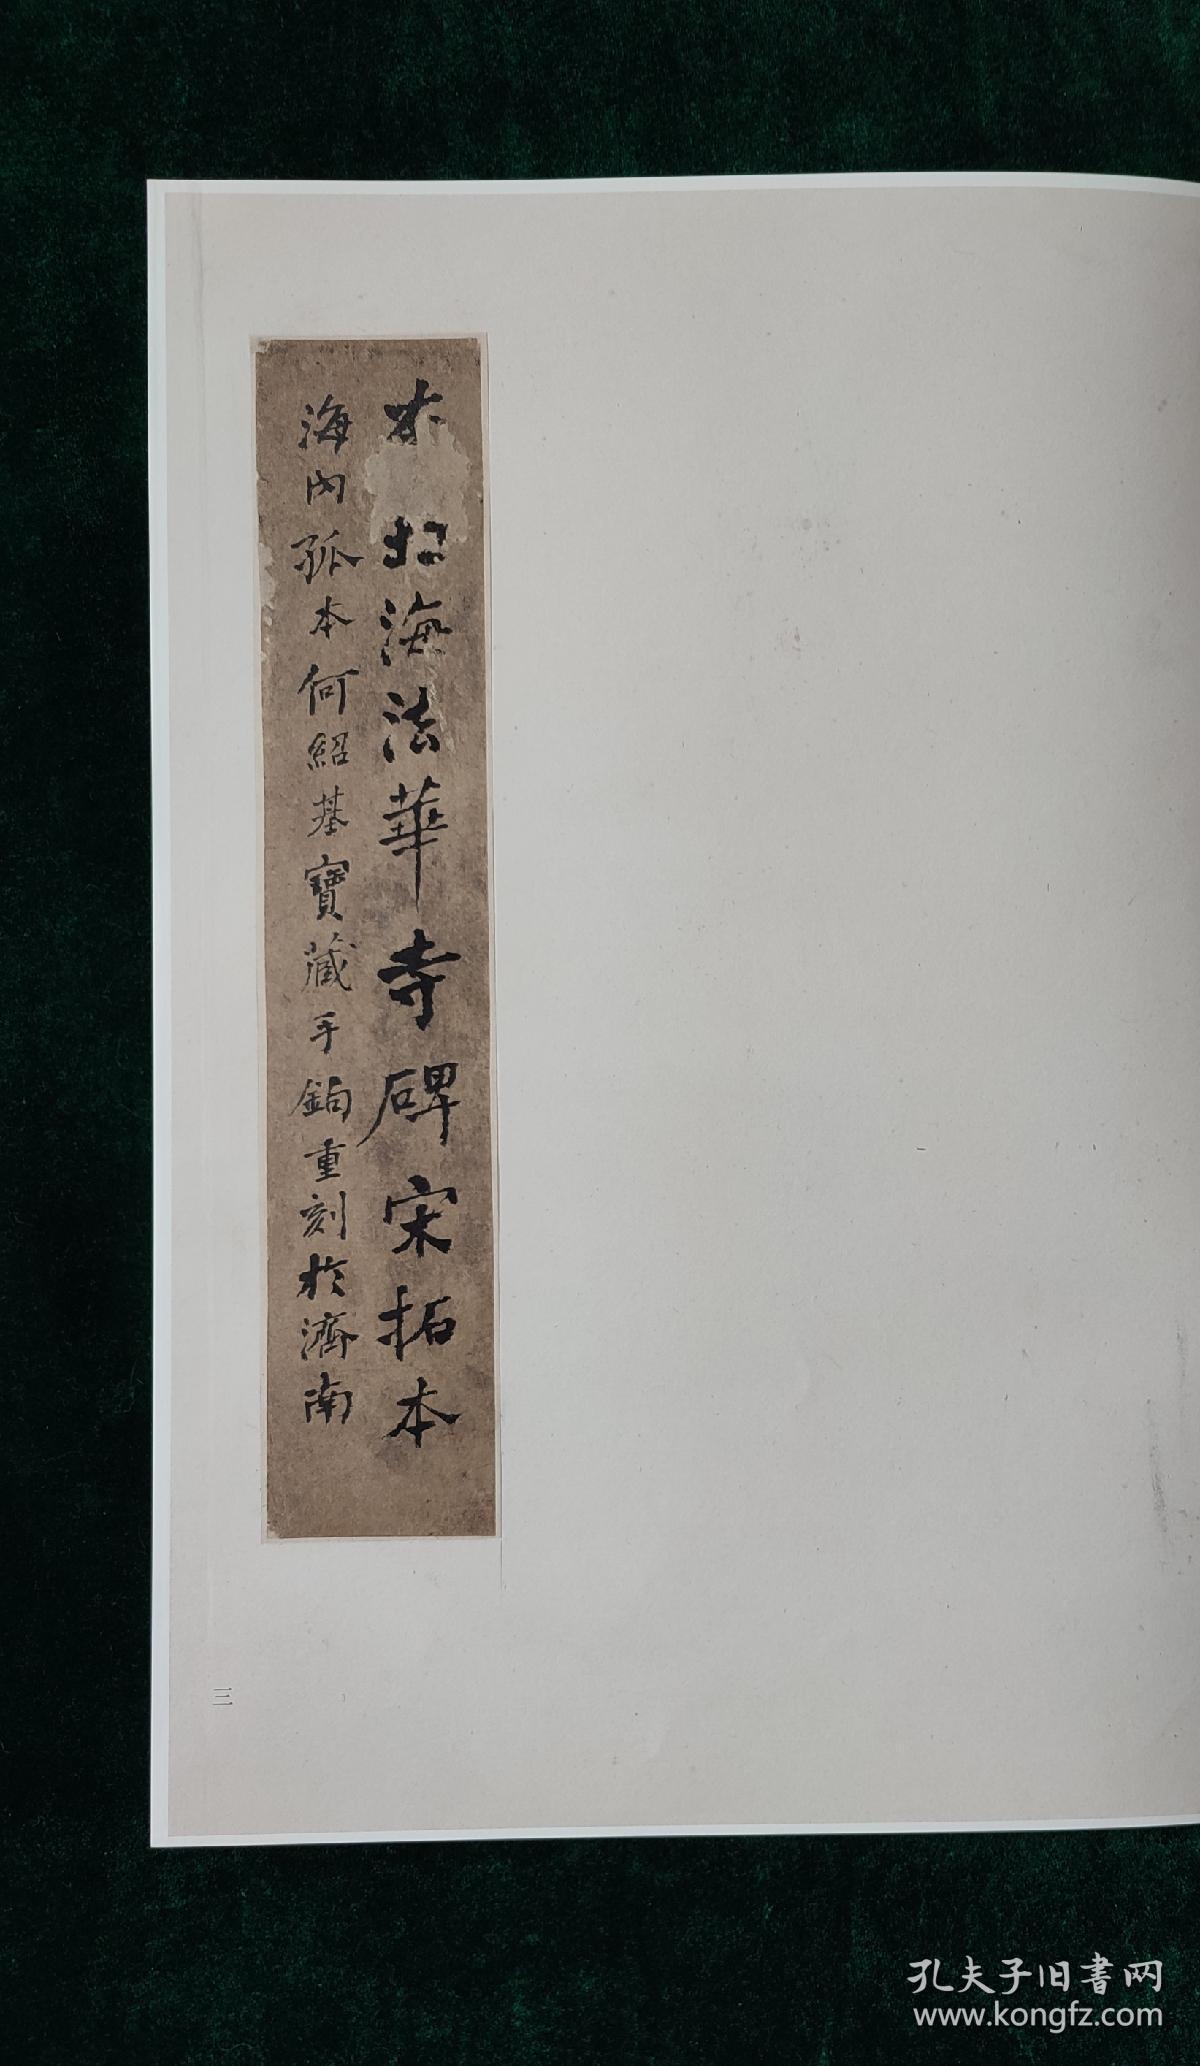 北海法華寺碑宋拓本
海內孤本何紹基寶藏手鉤重刻於濟南
三
孔夫子旧書网
www.kongfz.com